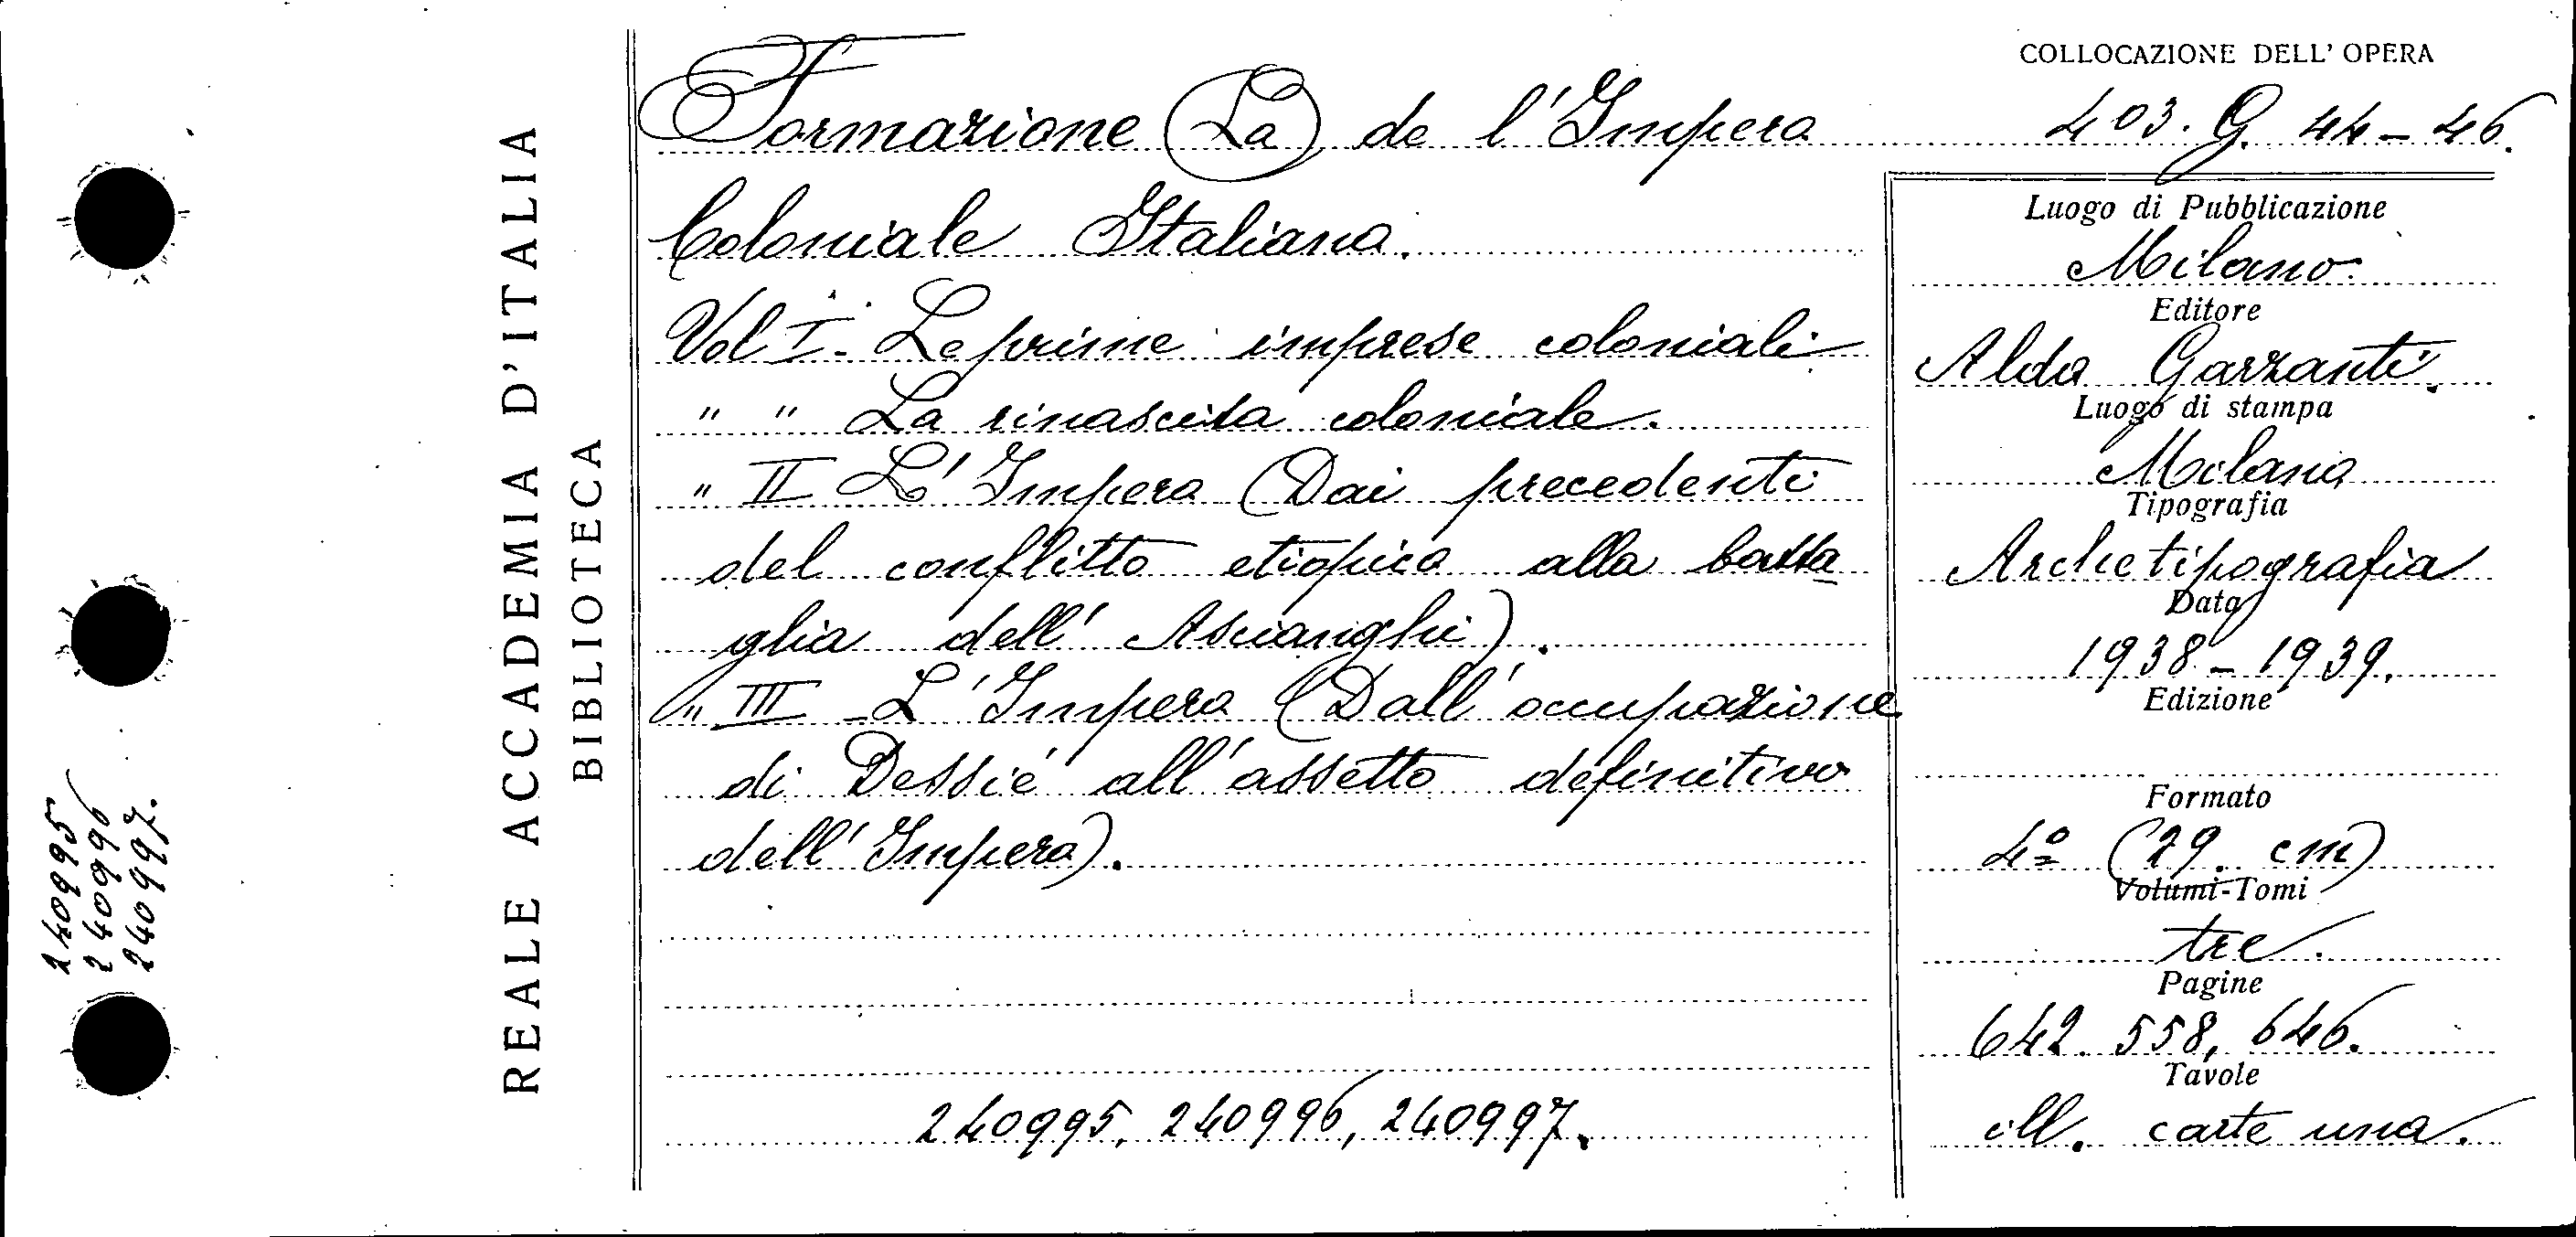 REALE ACCADEMIA D'ITALIA
BIBLIOTECA
240995
240996
240997.
Formazione (La) de l'Impero
Coloniale Italiano.
Vol I. Le prime imprese coloniali.
" " La rinascita coloniale.
" II L'Impero (Dai precedenti
del conflitto etiopico alla batta
glia dell' Ascianghi).
" III - L'Impero (Dall'occupazione
di Dessié all'assetto definitivo
dell'Impero).
240995, 240996, 240997.
COLLOCAZIONE DELL'OPERA
403. G. 44-46.
Luogo di Pubblicazione
Milano.
Editore
Aldo Garzanti.
Luogo di stampa
Milano
Tipografia
Archetipografia
Data
1938-1939.
Edizione
Formato
4º (29. cm)
Volumi-Tomi
tre.
Pagine
642. 558, 646.
Tavole
ill. carte una.